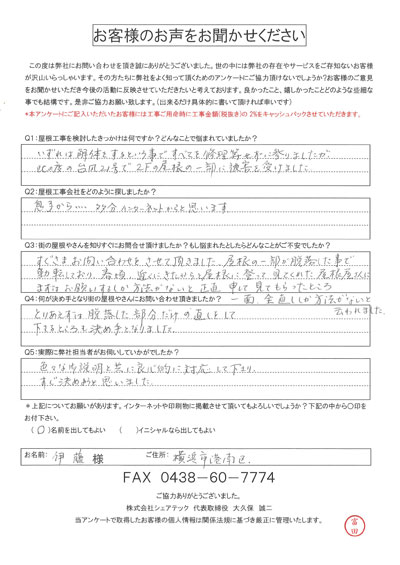 お客様のお声をお聞かせください
この度は弊社にお問い合わせを頂き誠にありがとうございました。世の中には弊社の存在やサービスをご存知ないお客様
が沢山いらっしゃいます。その方たちに弊社をよく知って頂くためのアンケートにご協力頂けないでしょうか?お客様のご意見
をお聞かせいただき今後の活動に反映させていただきたいと考えております。良かったこと、嬉しかったことどのような些細な
事でも結構です。是非ご協力お願い致します。(出来るだけ具体的に書いて頂ければ幸いです)
*本アンケートにご記入いただいたお客様には工事ご用命時に工事金額(税抜き)の 2%をキャッシュバックさせていただきます。
Q1:屋根工事を検討したきっかけは何ですか?どんなことで悩まれていましたか?
いずれは解体をするという事ですべてを修理等せずに参りましたが
台風21号で2Fの屋根の一部に被害を受けました
Q2:屋根工事会社をどのように探しましたか?
息子から‥‥ 多分インターネットからと思います
Q3:街の屋根やさんを知りすぐにお問合せ頂けましたか?もし悩まれたとしたらどんなことがご不安でしたか?
すぐさまお問い合わせをさせて頂きました 屋根の一部が脱落した事で
動転しており、 屋根に登って見てくれた屋根屋さんに
方法がないと正直申して見てもらったところ
一面全直ししか方法がないと
云われました
Q4:何が決め手となり街の屋根やさんにお問い合わせ頂きましたか?
とりあえずは脱落した部分だけの直しをして
下さるところも決め手となりました。
Q5:実際に弊社担当者がお伺いしていかがでしたか?
色々な御説明と共に良心的に対応して下さり、
すぐ決めようと思いました。
*上記についてお願いがあります。インターネットや印刷物に掲載させて頂いてもよろしいでしょうか?下記の中から〇印を
お付け下さい。
(〇)名前を出してもよい ( )イニシャルなら出してもよい
お名前: 伊藤 様 ご住所: 横浜市港南区
FAX 0438-60-7774
ご協力ありがとうございました。
株式会社シェアテック 代表取締役 大久保 誠二
当アンケートで取得したお客様の個人情報は関係法規に基づき厳正に管理いたします。
富田